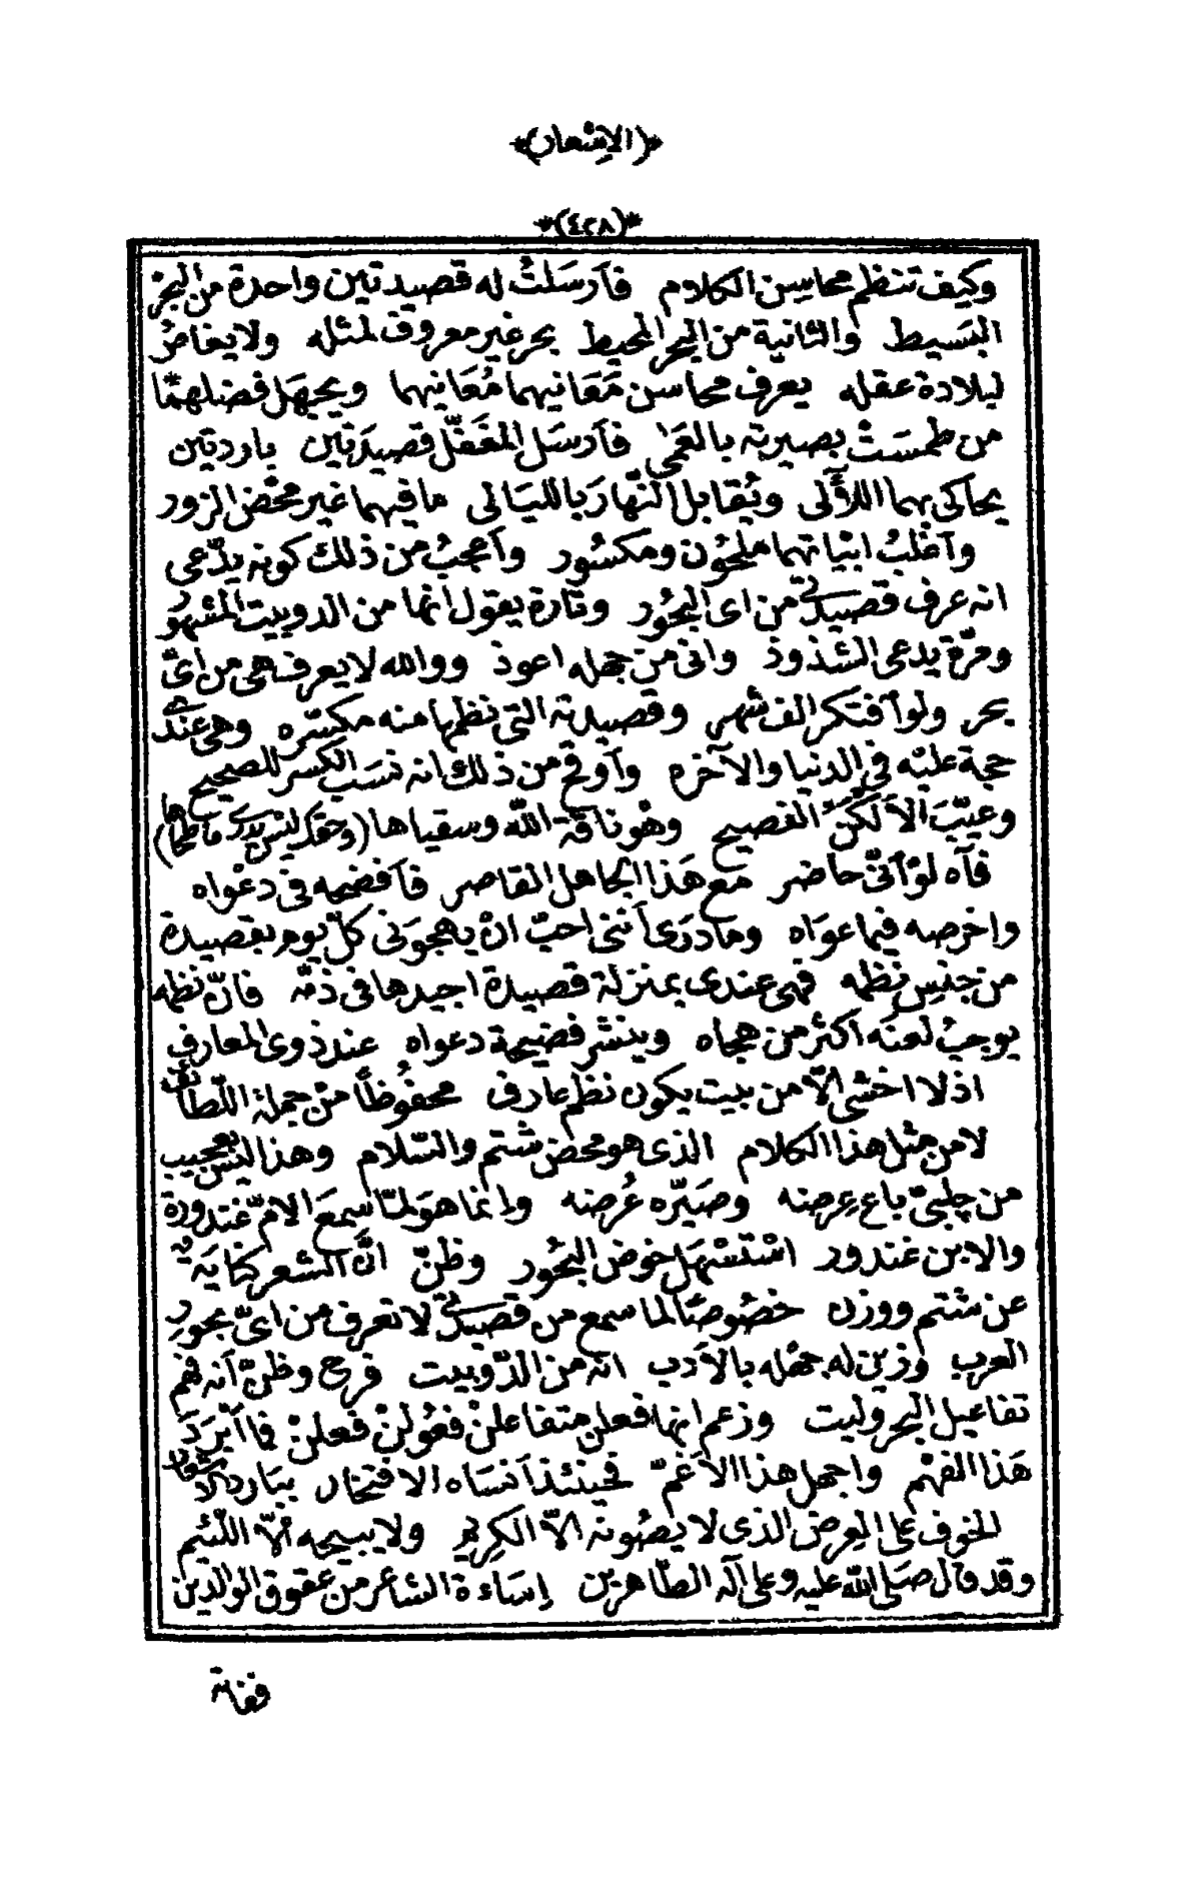 *(الاشعار)*
*(٤٢٨)*
وكيف تنظم محاسن الكلام فآرسَلتُ له قصيدتين واحدة من البحر
البَسيط والثانية من البحر المحيط بحر غير معروف لمثله ولا يغاصُ
لبلادة عقله يعرف محاسن مَعَانيهما مُعَانيهما ويجهَل فضلهمّا
من طمسَتْ بصيرته بالعَمٰى فآرسَل المغَفّل قصيدَتين باردتين
يحاكى بهما اللآلى ويُقابل النّهارَ بالليَالى ما فيهما غير محْض الزور
وآغلبُ ابْياتهما ملحُون ومكسُور وآعجبُ من ذلك كونه يدّعى
انه عرف قصيدتى من اى البحُور وتارة يعقول انما من الدوبيت المشهُور
ومَرّة يدعى الشذوذ وانى من جهله اعوذ ووالله لا يعرف هى من اىّ
بحر ولو آفتكر الف شهر وقصيدته التى نظمها منه مكسّره وهى عندى
حجة عليْه فى الدنيا والآخره وآوقح من ذلك انه نسَبَ الكسر للصحيح
وعيّبَ الآلكن الفصيح وهُو ناقة الله وسقياها (وحقك ليسَ يدرى ما طحاها)
فآه لوْ آنّى حاضر مع هَذا الجاهل القاصر فآفضحه فى دعْواه
واخرصه فيما عوَاه وما درَى آننى احبّ انْ يهجوَنى كلّ يوم بقصيدة
من جنْس نظمه فهى عندى بمنزلة قصيدة اجيدها فى ذمّه فانّ نظمه
يوجبُ لعنَه اكثر من هجاه وينشر فضيحة دعواه عند ذوى المعارف
اذ لا اخشى الّا من بيت يكون نظم عارف محفُوظاً منْ جملة اللّطائف
لا من مثل هذا الكلام الذى هو محض شتم والسّلام وهذا ليسَ بعجيب
من چلبىّ باع عِرضه وصَيّره عُرضه وانما هوَ لمّا سمعَ الامّ غندورة
والابن غندور اسْتسْهَل خوض البحُور وظنّ انّ الشعر كنايَة
عن شتم ووزن خصُوصًا لما سمع من قصيدتى لا تعرف من اىّ بحورِ
العرب وزين له جهْله بالآدب انّه من الدّوبيت فرح وظنّ آنه فهم
تفاعيل البحر وليت وزعم انها فعلن متفاعلنْ فعُولنْ فعلنْ فما آبْرَدَ
هَذا الفهْم واجهل هذا الآغمّ فحينئذ آنسَاه الافتخار ببَارد الاشعار
الخوف على العِرض الذى لا يصُونه الّا الكريم ولا يبيحه الّا اللّئيم
وقد قال صَلى الله عليه وعلى آله الطّاهرين إسَاءة الشاعر من عقوق الوالدين